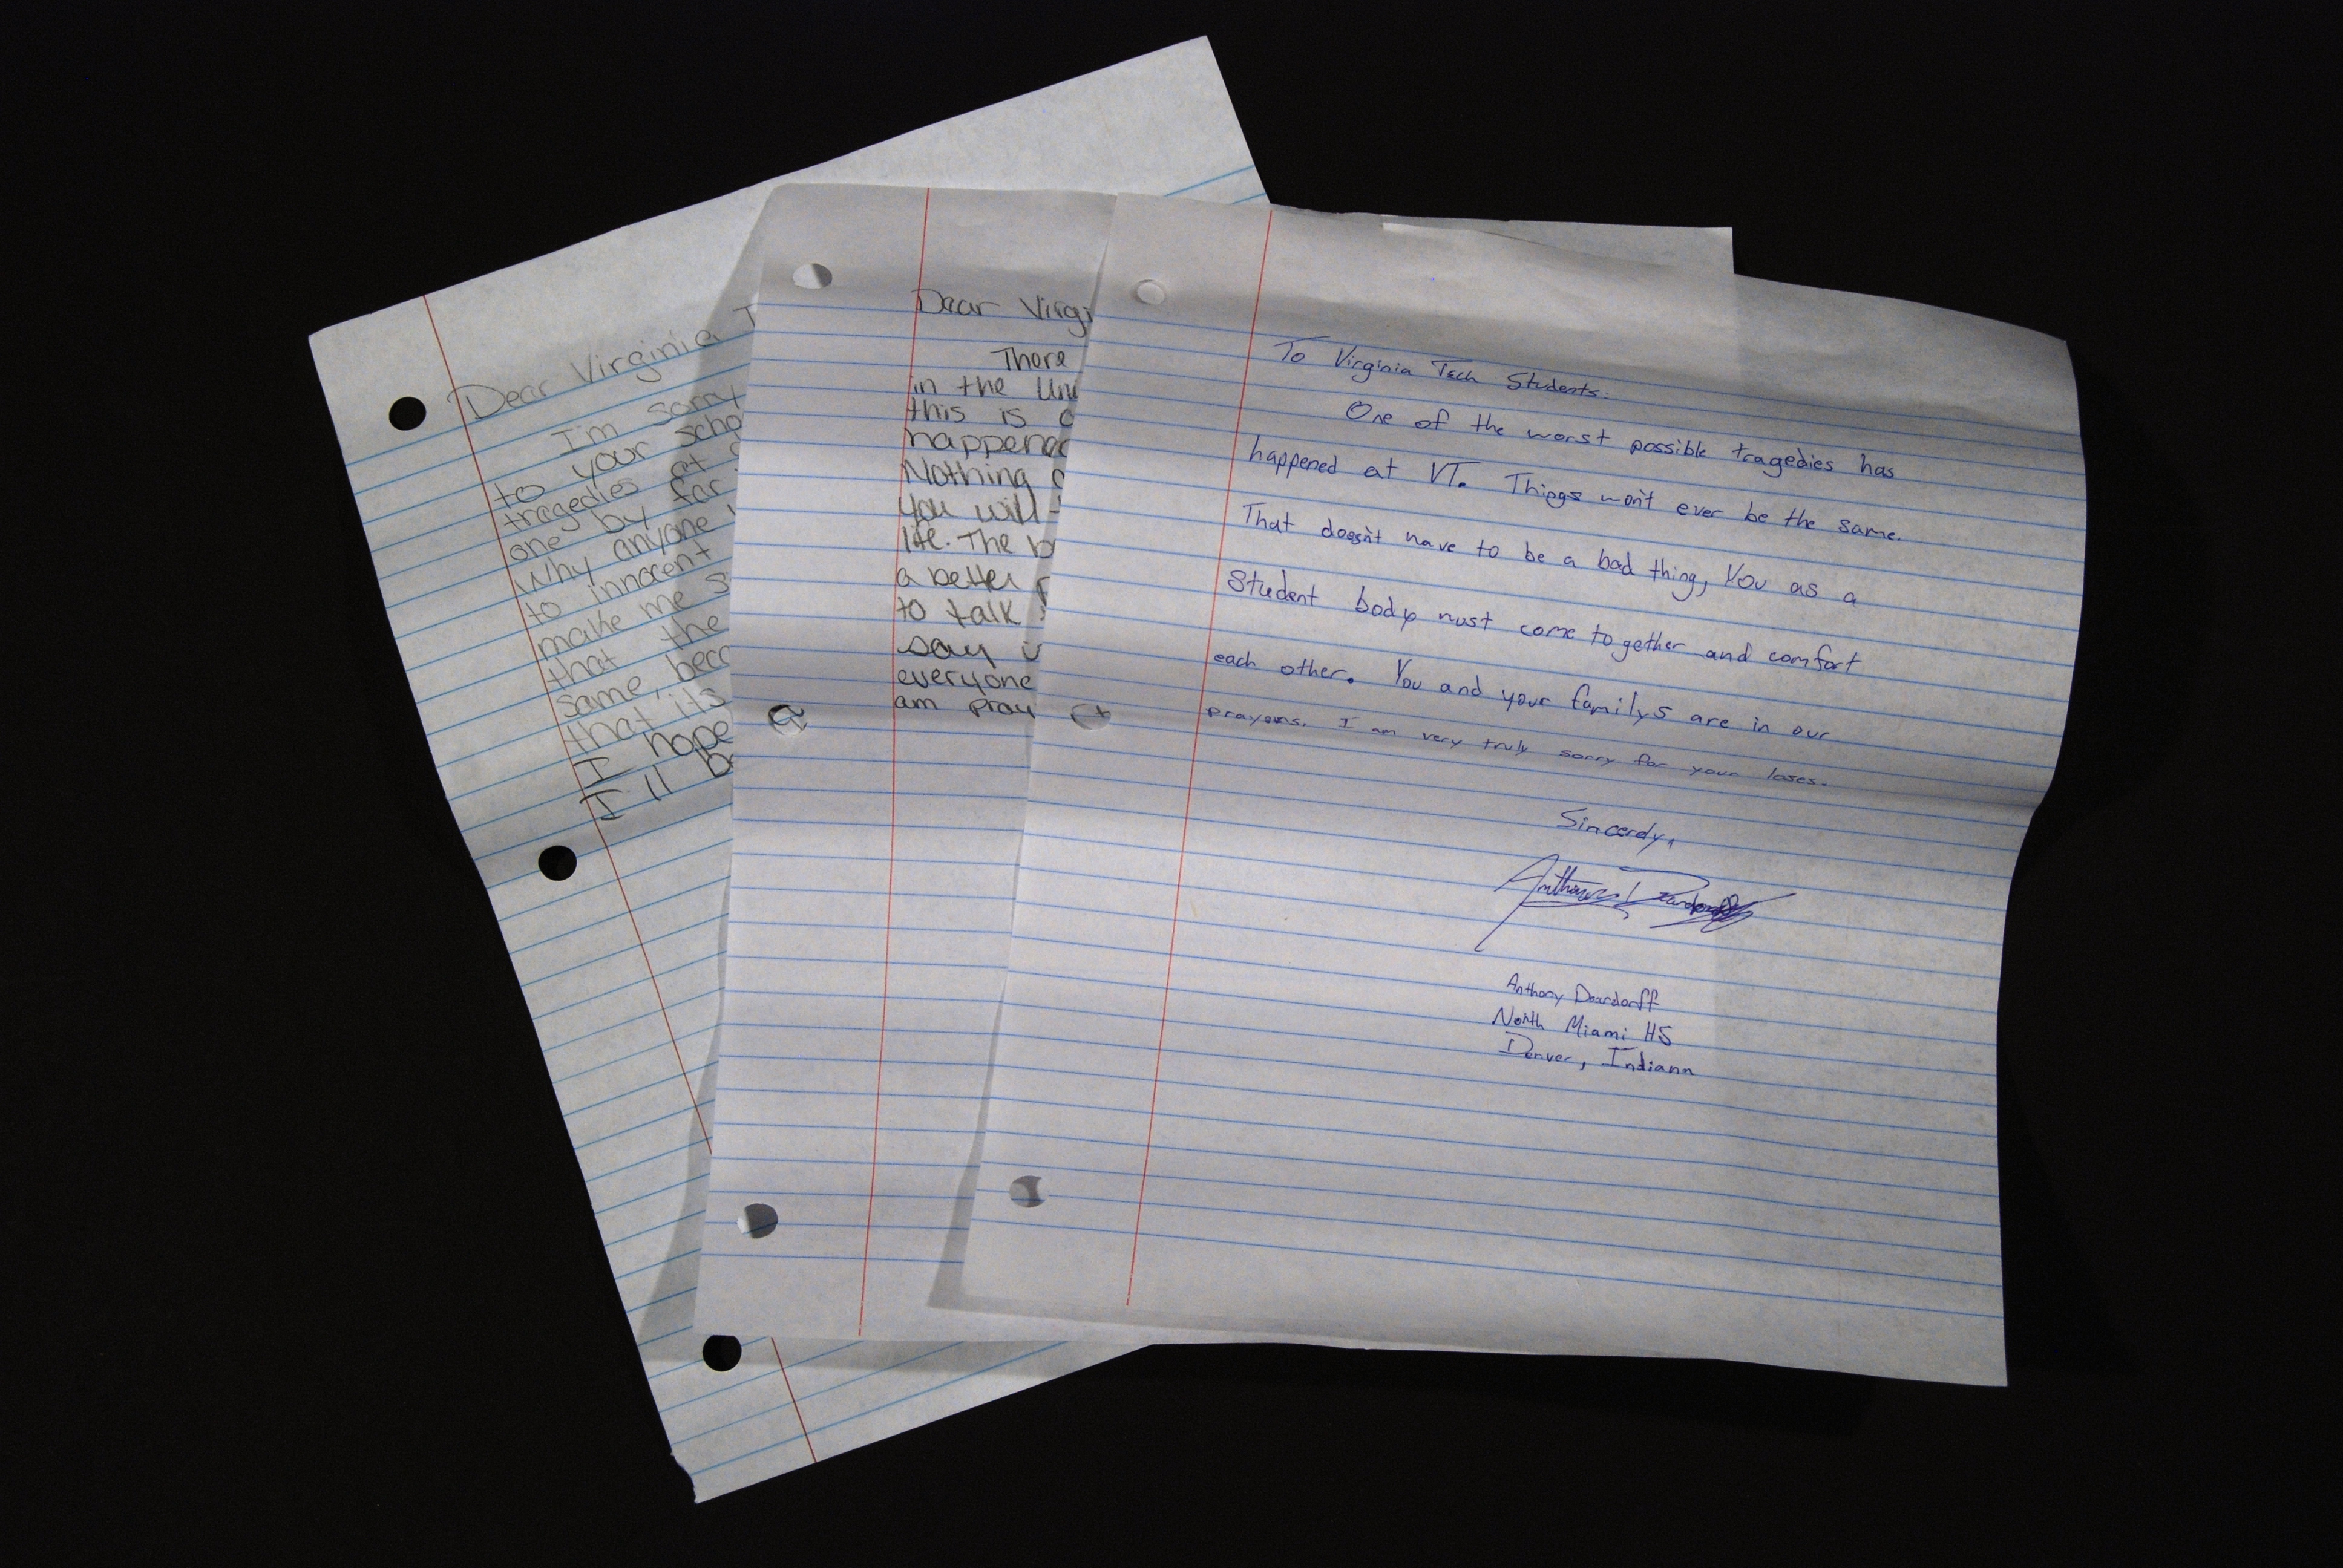 Dear Virginia T
I'm sorry
to your scho
tragedies at
one by far
Why anyone
to innocent
make me s
that the
same, beca
that its
I hope
I'll be
Dear Virgi
There
in the Uni
this is
happened
Nothing
you will
life. The b
a better
to talk
say
everyone
am pray
To Virginia Tech Students:
One of the worst possible tragedies has
happened at VT. Things won't ever be the same.
That doesn't have to be a bad thing, You as a
Student body must come together and comfort
each other. You and your familys are in our
prayers. I am very truly sorry for your loses.
Sincerely,
Anthony Deardorff
Anthony Deardorff
North Miami HS
Denver, Indiana